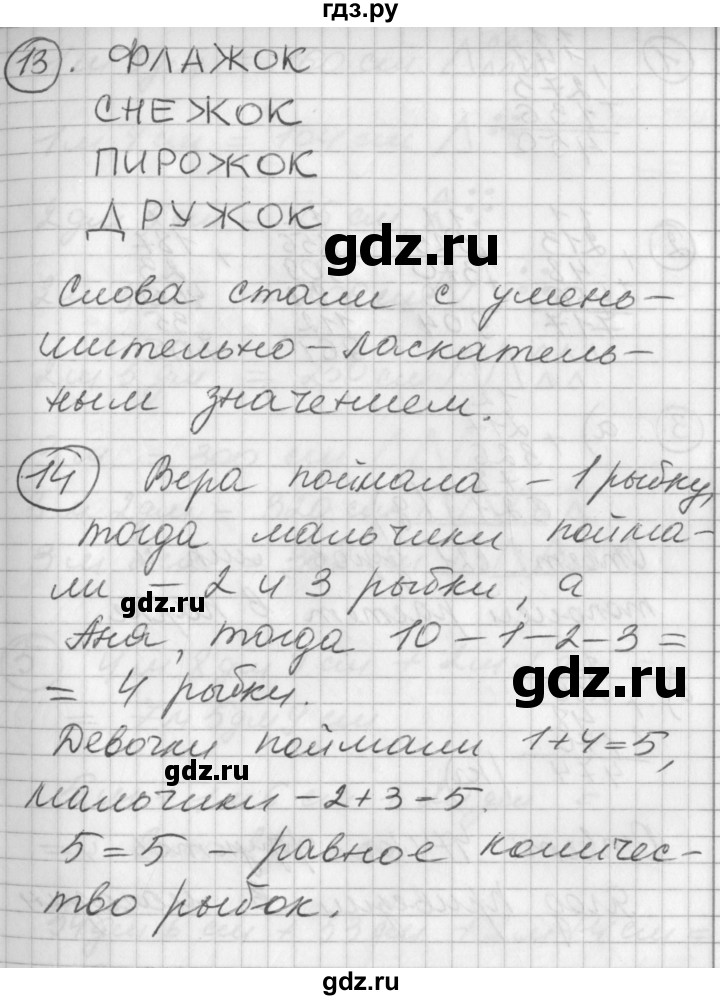 гдз.ру
13. ФЛАЖОК
СНЕЖОК
ПИРОЖОК
ДРУЖОК
gdz.ru
Слова стали с умень-
шительно-ласкатель-
ным значением.
14 Вера поймала - 1 рыбку,
тогда мальчики пойма-
ли - 2 и 3 рыбки, а
gdz.ru
Аня, тогда 10-1-2-3=
gdz.ru
= 4 рыбки.
Девочки поймали 1+4=5,
gdz.ru
мальчики -2+3-5.
5=5 - равное количес-
тво рыбок.
gdz.ru